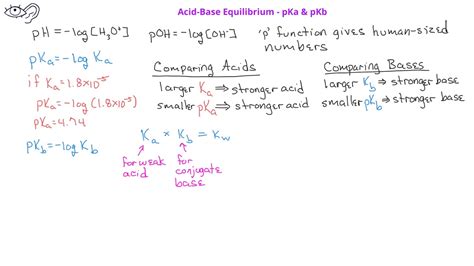 Acid-Base Equilibrium - pKa & pKb
pH = -log[H₃O⁺] pOH = -log[OH⁻] 'p' function gives human-sized
numbers
pKa = -log Ka
if Ka = 1.8×10⁻⁵
pKa = -log(1.8×10⁻⁵)
pKa = 4.74
pKb = -log Kb
Comparing Acids
larger Ka ⇒ stronger acid
smaller pKa ⇒ stronger acid
Comparing Bases
larger Kb ⇒ stronger base
smaller pKb ⇒ stronger base
Ka × Kb = Kw
for weak
acid
for
conjugate
base